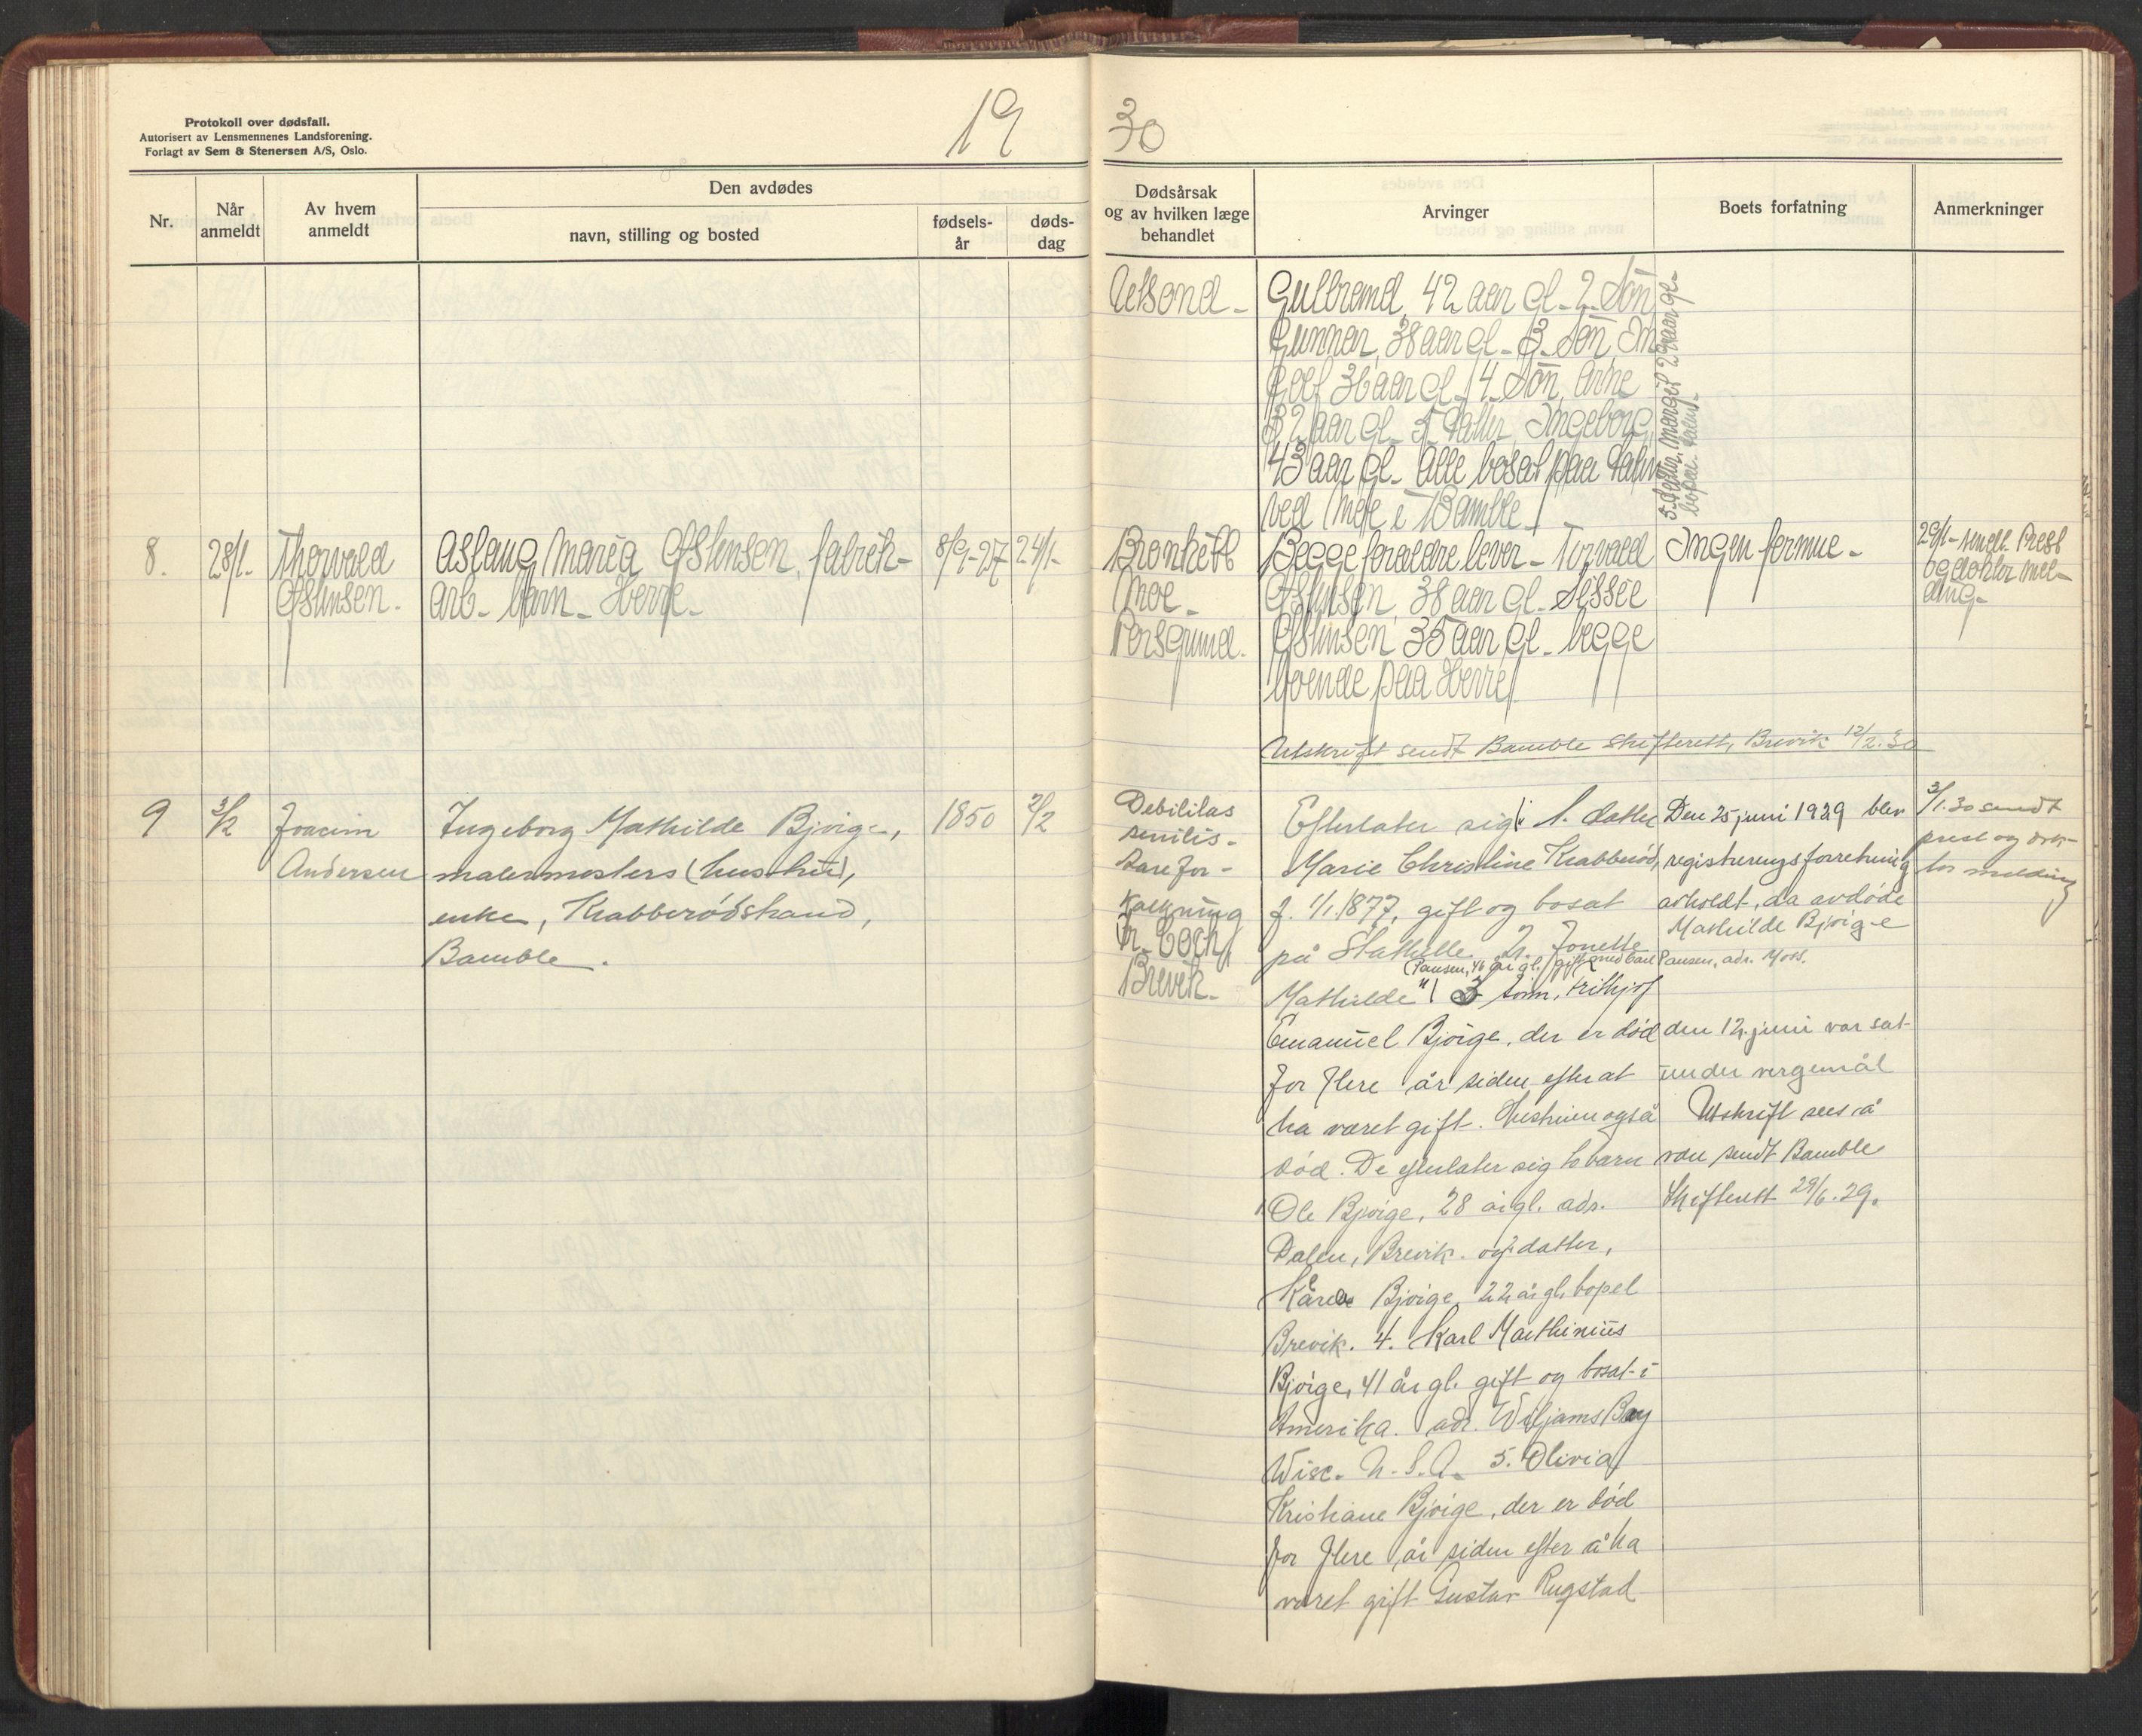 Protokoll over dødsfall.
Autorisert av Lensmennenes Landsforening.
Forlagt av Sem & Stenersen A/S, Oslo.
19
30
Nr.
Når anmeldt
Av hvem anmeldt
Den avdødes
navn, stilling og bosted
fødsels-
år
døds-
dag
Dødsårsak
og av hvilken læge
behandlet
Arvinger
Boets forfatning
Anmerkninger
Gulbrand, 42 aar gl. 2. Søn
Gunnar, 38 aar gl. 3. Søn, In
golf 36 aar gl. 4. Søn, Arne
32 aar gl. 5 datter, Ingeborg,
43 aar gl. Alle bosat paa
ved i Bamble
5. datter, Margit 29 aar gl.
bopæl.
8.
28/1.
Thorvald
Aslaug Maria fabrik-
arb. barn. Herre.
8/9-27
24/1.
Bronkitt
Moe.
Porsgrund.
Begge foræeldre lever. Torvald
38 aar gl.
35 aar gl. begge
boende paa Herre
Ingen formue.
29/1- sendt Prest
og doktor mel-
ding.
Utskrift sendt Bamble skifterett, Brevik 12/2.30
9
3/2
Joacim
Andersen
Ingeborg Mathilde Bjørge,
malermesters (hustru),
enke, Krabberødstrand,
Bamble.
1850
2/2
Debilitas
senilis.
Aarefor-
kalkning
Dr. Coch
Brevik.
Efterlater sig: 1. datter
Marie Christine Krabberød,
f. 1/1.1877, gift og bosat
på Stathelle 2. Jonette
(Pausen, 46 år gl. gift med Carl Pausen, adr. Moss.
Mathilde 3 sønn, Frithjof
Emanuel Bjørge, der er død
for flere år siden efter at
ha været gift. Hustruen også
død. De efterlater sig to barn
1 Ole Bjørge, 28 år gl. adr.
Dalen, Brevik. og 2. datter,
Kåre Bjørge, 22 år gl. bopel
Brevik. 4. Karl Marthinius
Bjørge, 41 år gl. gift og bosat i
Amerika. adr. Wiljams Bay
Wisc. U.S.A. 5. Olivia
Kristiane Bjørge, der er død
for flere år siden efter å ha
været gift Gustav Rugstad
Den 25 juni 1929 blev
registreringsforretning
avholdt, da avdøde
Mathilde Bjørge
den 12. juni var sat
under vergemål
Utskrift sees å
væe sendt Bamble
Skifterett 29/6.29.
3/1.30 sendt
prest og dok-
tor melding